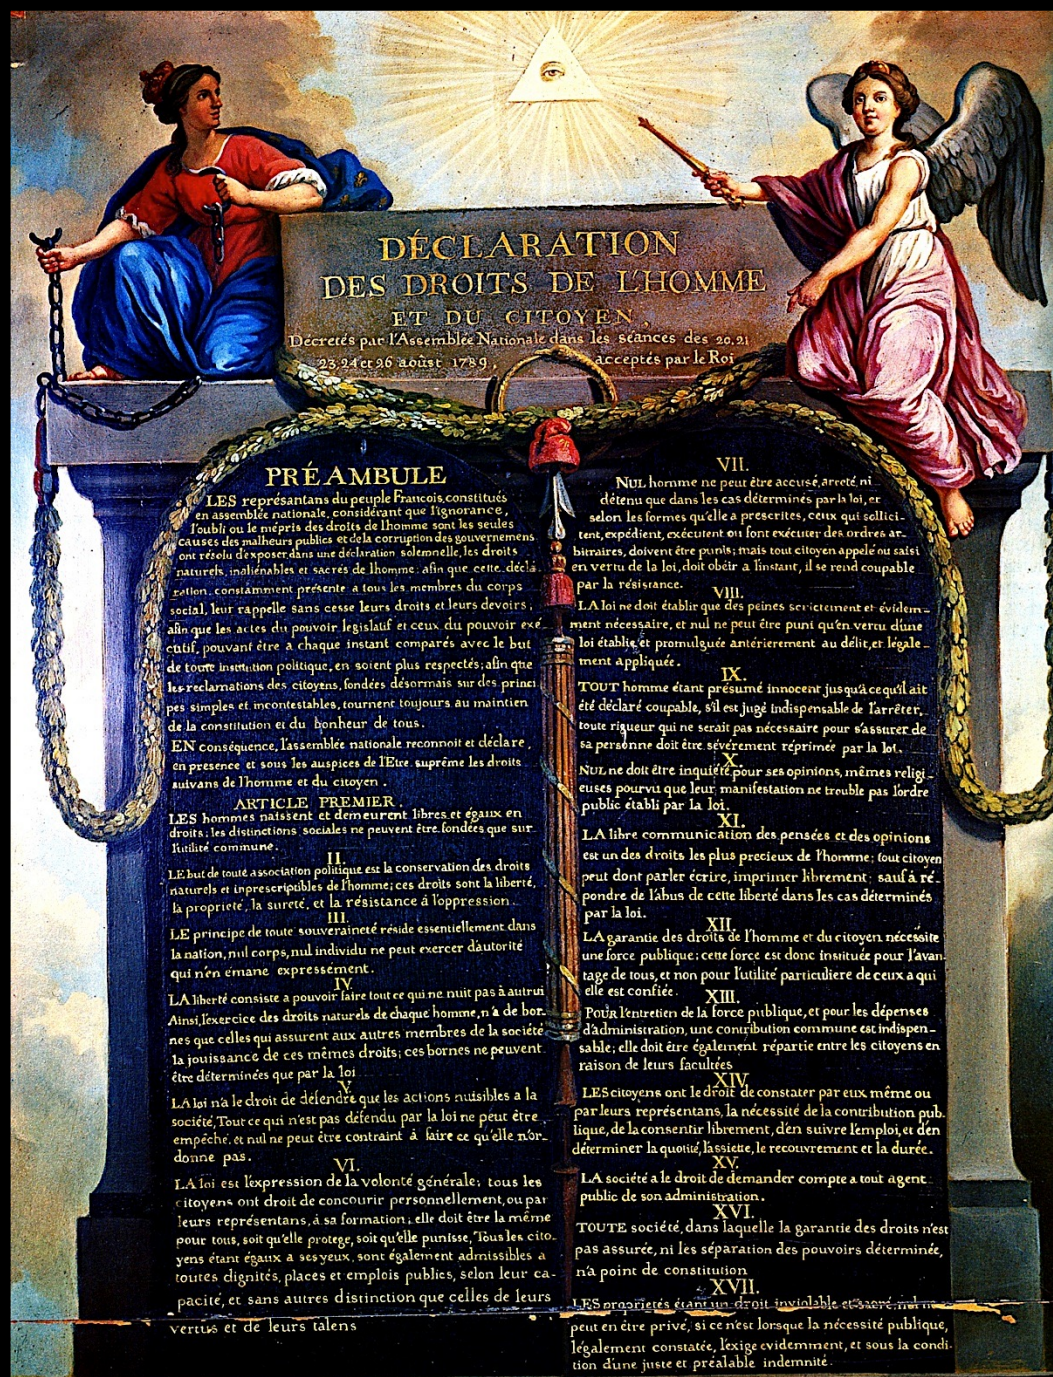 DÉCLARATION
DES DROITS DE L'HOMME
ET DU CITOYEN,
Décretés par l'Assemblée Nationale dans les séances des 20, 21
23, 24 et 26 aoûst 1789, acceptés par le Roi
PRÉAMBULE
LES représantans du peuple Francois, constitués
en assemblée nationale, considérant que l'ignorance,
l'oubli ou le mépris des droits de l'homme sont les seules
causes des malheurs publics et de la corruption des gouvernemens
ont résolu d'exposer, dans une déclaration solemnelle, les droits
naturels, inaliénables et sacrés de l'homme: afin que cette décla
ration, constamment présente a tous les membres du corps
social, leur rappelle sans cesse leurs droits et leurs devoirs;
afin que les actes du pouvoir legislatif et ceux du pouvoir exé
cutif, pouvant être a chaque instant comparés avec le but
de toute institution politique, en soient plus respectés; afin que
les reclamations des citoyens, fondées désormais sur des princi
pes simples et incontestables, tournent toujours au maintien
de la constitution et du bonheur de tous.
EN conséquence, l'assemblée nationale reconnoit et déclare,
en presence et sous les auspices de l'Etre suprême les droits
suivans de l'homme et du citoyen.
ARTICLE PREMIER.
LES hommes naissent et demeurent libres et égaux en
droits; les distinctions sociales ne peuvent être fondées que sur
l'utilité commune.
II.
LE but de toute association politique est la conservation des droits
naturels et inprescriptibles de l'homme; ces droits sont la liberté,
la propriété, la sureté, et la résistance à l'oppression.
III.
LE principe de toute souveraineté réside essentiellement dans
la nation, nul corps, nul individu ne peut exercer d'autorité
qui n'en émane expressément.
IV.
LA liberté consiste a pouvoir faire tout ce qui ne nuit pas à autrui
Ainsi, l'exercice des droits naturels de chaque homme, n'a de bor-
nes que celles qui assurent aux autres membres de la société
la jouissance de ces mêmes droits; ces bornes ne peuvent
être déterminées que par la loi
V.
LA loi n'a le droit de défendre que les actions nuisibles a la
société, Tout ce qui n'est pas défendu par la loi ne peut être
empéché, et nul ne peut être contraint à faire ce qu'elle n'or-
donne pas.
VI.
LA loi est l'expression de la volonté générale; tous les
citoyens ont droit de concourir personnellement, ou par
leurs représentans, à sa formation; elle doit être la même
pour tous, soit qu'elle protege, soit qu'elle punisse, Tous les cito-
yens étant égaux a ses yeux, sont également admissibles a
toutes dignités, places et emplois publics, selon leur ca-
pacité, et sans autres distinction que celles de leurs
vertus et de leurs talens
VII.
NUL homme ne peut être accusé, arreté, ni
détenu que dans les cas déterminés par la loi, et
selon les formes qu'elle a prescrites, ceux qui sollici-
tent, expédient, exécutent ou font exécuter des ordres ar-
bitraires, doivent être punis; mais tout citoyen appelé ou saisi
en vertu de la loi, doit obéir a l'instant, il se rend coupable
par la résistance.
VIII.
LA loi ne doit établir que des peines strictement et évidem-
ment nécessaire, et nul ne peut être puni qu'en vertu d'une
loi établie et promulguée antérierement au délit, et légale-
ment appliquée.
IX.
TOUT homme étant présumé innocent jusqu'à ce qu'il ait
été déclaré coupable, s'il est jugé indispensable de l'arrêter,
toute rigueur qui ne serait pas nécessaire pour s'assurer de
sa personne doit être sévérement réprimée par la loi.
X.
NUL ne doit être inquiété pour ses opinions, mêmes religi-
euses pourvu que leur manifestation ne trouble pas l'ordre
public établi par la loi.
XI.
LA libre communication des pensées et des opinions
est un des droits les plus precieux de l'homme; tout citoyen
peut dont parler écrire, imprimer librement; sauf à ré-
pondre de l'abus de cette liberté dans les cas déterminés
par la loi.
XII.
LA garantie des droits de l'homme et du citoyen nécessite
une force publique; cette force est donc instituée pour l'avan-
tage de tous, et non pour l'utilité particuliere de ceux a qui
elle est confiée.
XIII.
POUR l'entretien de la force publique, et pour les dépenses
d'administration, une contribution commune est indispen-
sable; elle doit être également répartie entre les citoyens en
raison de leurs facultées
XIV
LES citoyens ont le droit de constater par eux même ou
par leurs représentans, la nécessité de la contribution pub-
lique, de la consentir librement, d'en suivre l'emploi, et d'en
déterminer la quotité, l'assiette, le recouvrement et la durée.
XV.
LA société a le droit de demander compte a tout agent
public de son administration.
XVI.
TOUTE société, dans laquelle la garantie des droits n'est
pas assurée, ni les séparation des pouvoirs déterminée,
n'a point de constitution
XVII.
LES propriétés étant un droit inviolable et sacré, nul ne
peut en être privé, si ce n'est lorsque la nécessité publique,
légalement constatée, l'exige evidemment, et sous la condi-
tion d'une juste et préalable indemnité.